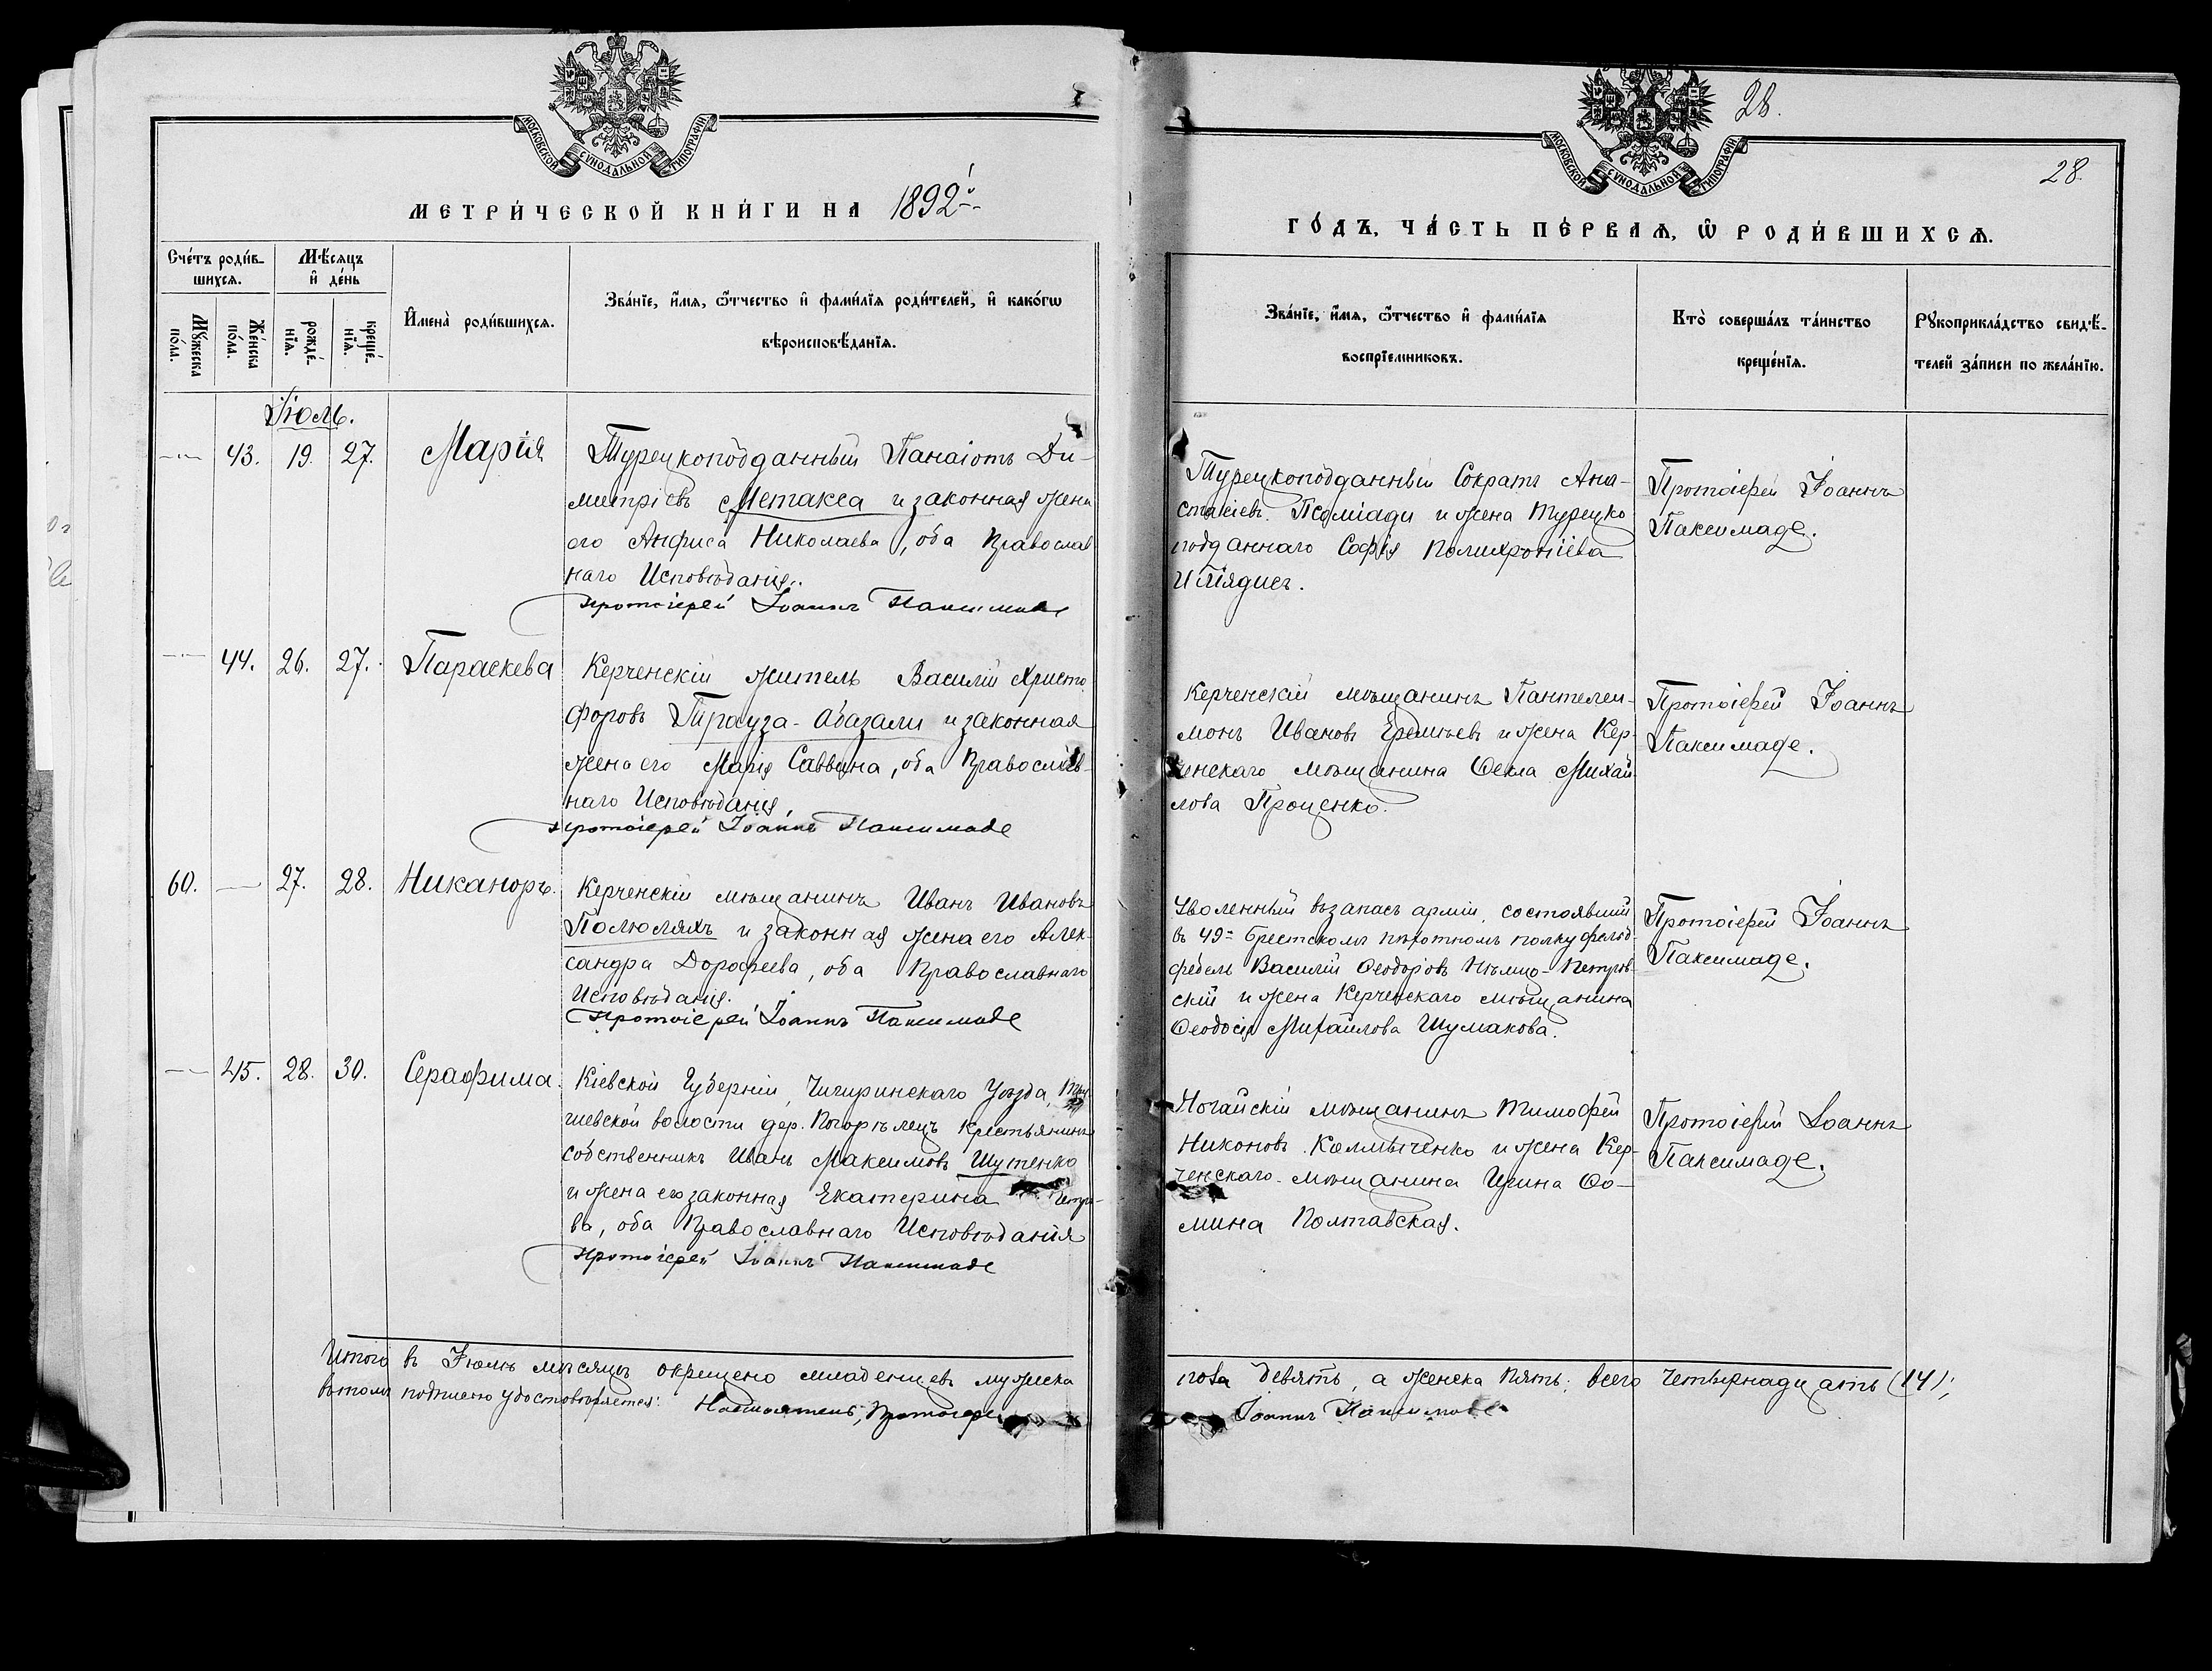 МОСКОВСКОЙ СѴНОДАЛЬНОЙ ТИПОГРАФІИ
МЕТРИ́ЧЕСКОЙ КНИ́ГИ НА 1892й
Сче́тъ роди́в-
шихсѧ.
Мѣ́сѧцъ
и҆ де́нь
Мꙋ́жеска
по́ла.
Же́нска
по́ла.
рожде́-
нїѧ.
креще́-
нїѧ.
И҆мена̀ роди́вшихсѧ.
Зва́нїе, и҆́мѧ, ѻ҆́тчество и҆ фами́лїѧ роди́телей, и҆ како́гѡ
вѣроисповѣ́данїѧ.
Іюль.
43. 19. 27. Марія
Турецкоподданный Панаіотъ Ди-
митріевъ Метакса и законная жена
его Анфиса Николаева, оба Православ
наго Исповѣданія.
Протоіерей Іоаннъ Паксимаде
44. 26. 27. Параскева
Керченскій житель Василій Христо
форовъ Трауза-Абазали и законная
жена его Марія Саввина, оба Православ-
наго Исповѣданія.
Протоіерей Іоаннъ Паксимаде
60. — 27. 28. Никаноръ.
Керченскій мѣщанинъ Иванъ Ивановъ
Полюляхъ и законная жена его Алек-
сандра Дорофеева, оба Православнаго
Исповѣданія.
Протоіерей Іоаннъ Паксимаде
45. 28. 30. Серафима.
Кіевской Губерніи, Чигиринскаго Уѣзда,
шевской волости дер. Погорѣлецъ Крестьянинъ
собственникъ Иванъ Максимовъ Шутенко
и жена его законная Екатерина
ва, оба Православнаго Исповѣданія
Протоіерей Іоаннъ Паксимаде
Итого въ Іюлѣ мѣсяцѣ окрещено младенцевъ мужеска
въ томъ подписью удостовѣряется: Настоятель, Протоіерей
28.
28.
МОСКОВСКОЙ СѴНОДАЛЬНОЙ ТИПОГРАФІИ
ГО́ДЪ, ЧА́СТЬ ПЕ́РВАѦ, Ѡ҆ РОДИ́ВШИХСѦ.
Зва́нїе, и҆́мѧ, ѻ҆́тчество и҆ фами́лїѧ
воспрїемниковъ.
Кто̀ соверша́лъ та́инство
креще́нїѧ.
Рꙋкоприкла́дство свидѣ́-
телей за́писи по жела́нїю.
Турецкоподданный Сократъ Ана-
стасіевъ Псоміади и жена Турецко
подданнаго Софія Полихроніева
Иліядисъ.
Протоіерей Іоаннъ
Паксимаде.
Керченскій мѣщанинъ Пантелеи-
монъ Ивановъ Еремѣевъ и жена Кер-
ченскаго мѣщанина Ѳекла Михай
лова Проценко.
Протоіерей Іоаннъ
Паксимаде.
Уволенный въ запасъ арміи, состоявшій
въ 49= Брестскомъ пѣхотномъ полку фельд-
фебель Василій Ѳеодоровъ Нѣмцо-Петров-
скій и жена Керченскаго мѣщанина
Ѳеодосія Михайлова Шумакова.
Протоіерей Іоаннъ
Паксимаде.
Ногайскій мѣщанинъ Тимофей
Никоновъ Калмыченко и жена Кер-
ченскаго мѣщанина Ирина Ѳо-
мина Полтавская.
Протоіерей Іоаннъ
Паксимаде.
пола девять, а женска пять; всего четырнадцать (14);
Іоаннъ Паксимаде